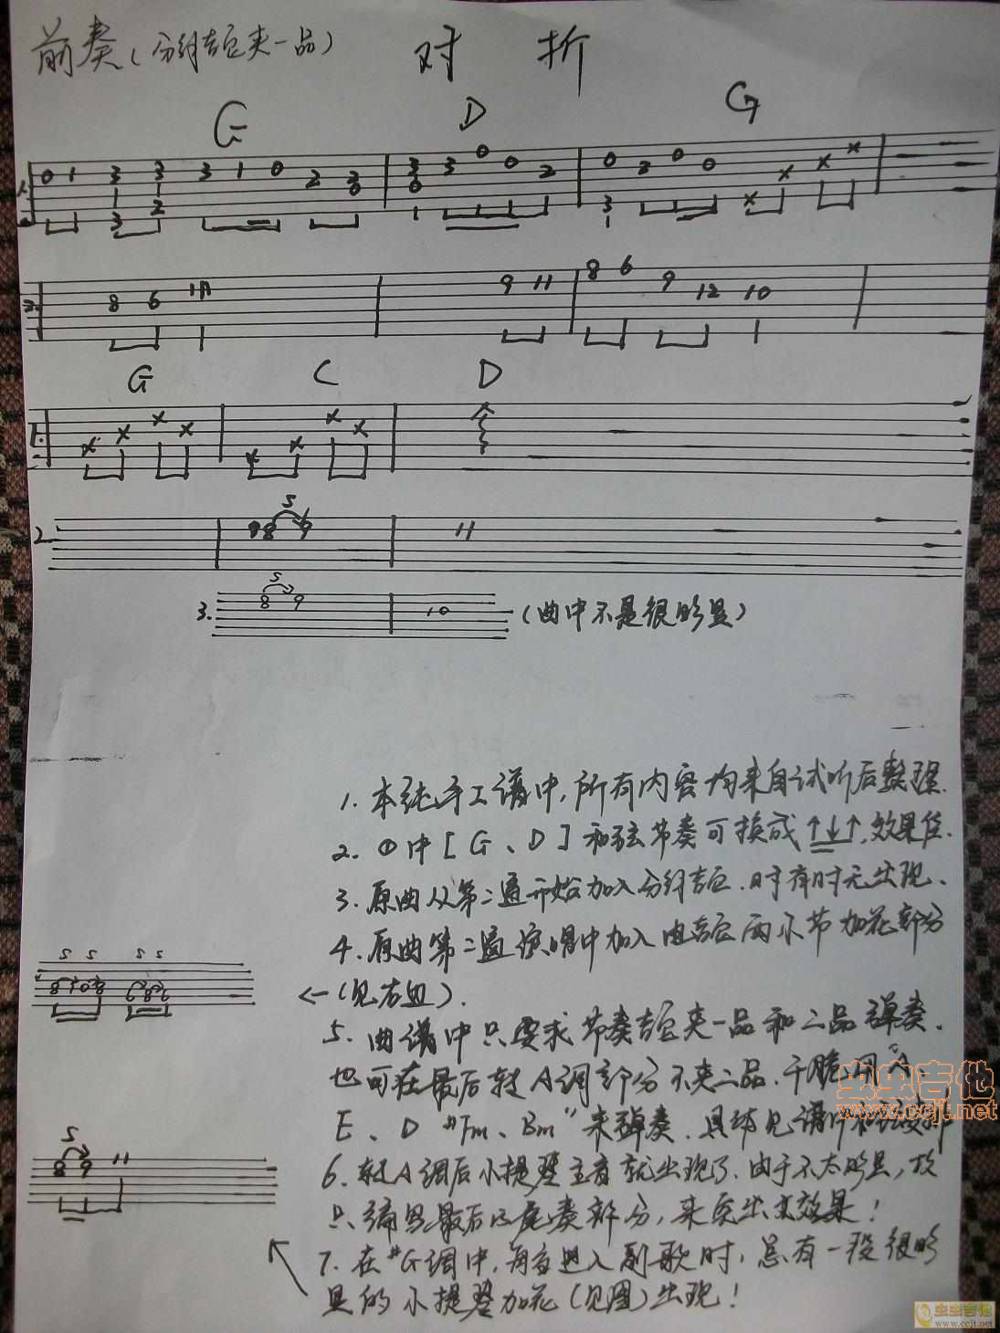 前奏(分解吉它夹一品) 对 折
G D G
1. 0 1 3 3 3 1 0 2 3 3 3 0 0 2 0 2 0 0 × × × ×
3 2 0 0 3
2. 8 6 11 9 11 8 6 9 12 10
G C D
1. × × × × × × × ×
S
2. 8 9 11
S
3. 8 9 10 (曲中不是很明显)
1. 本纯手工谱中,所有内容均来自试听后整理.
2. ①中[G、D]和弦节奏可换成↑↓↑,效果佳.
3. 原曲从第二遍开始加入分解吉它.时有时无出现、
4. 原曲第二遍演唱中加入电吉它两小节加花部分
S S S S
8 10 8 6 8 6
←(见右面).
5. 曲谱中只要求节奏吉它夹一品和二品弹奏.
也可在最后转A调部分不夹二品.干脆用"A、
E、D #Fm、Bm"来弹奏.具体见谱中和弦安排
6. 转A调后小提琴主音就出现了.由于不太明显,故
S
8 9 11
只编写最后的尾奏部分,来突出其效果!
7. 在#G调中,每当进入副歌时,总有一段很明
显的小提琴加花(见图)出现!
虫虫吉他
www.ccjt.net
虫虫吉他
www.ccjt.net